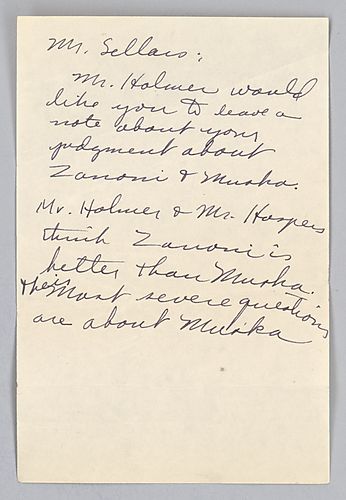 Mr. Sellars;
Mr. Holmer would
like you to leave a
note about your
judgment about
Zanoni & Muska.
Mr. Holmer & Mr. Hospers
think Zanoni is
better than Muska.
their Most severe questions
are about Muska